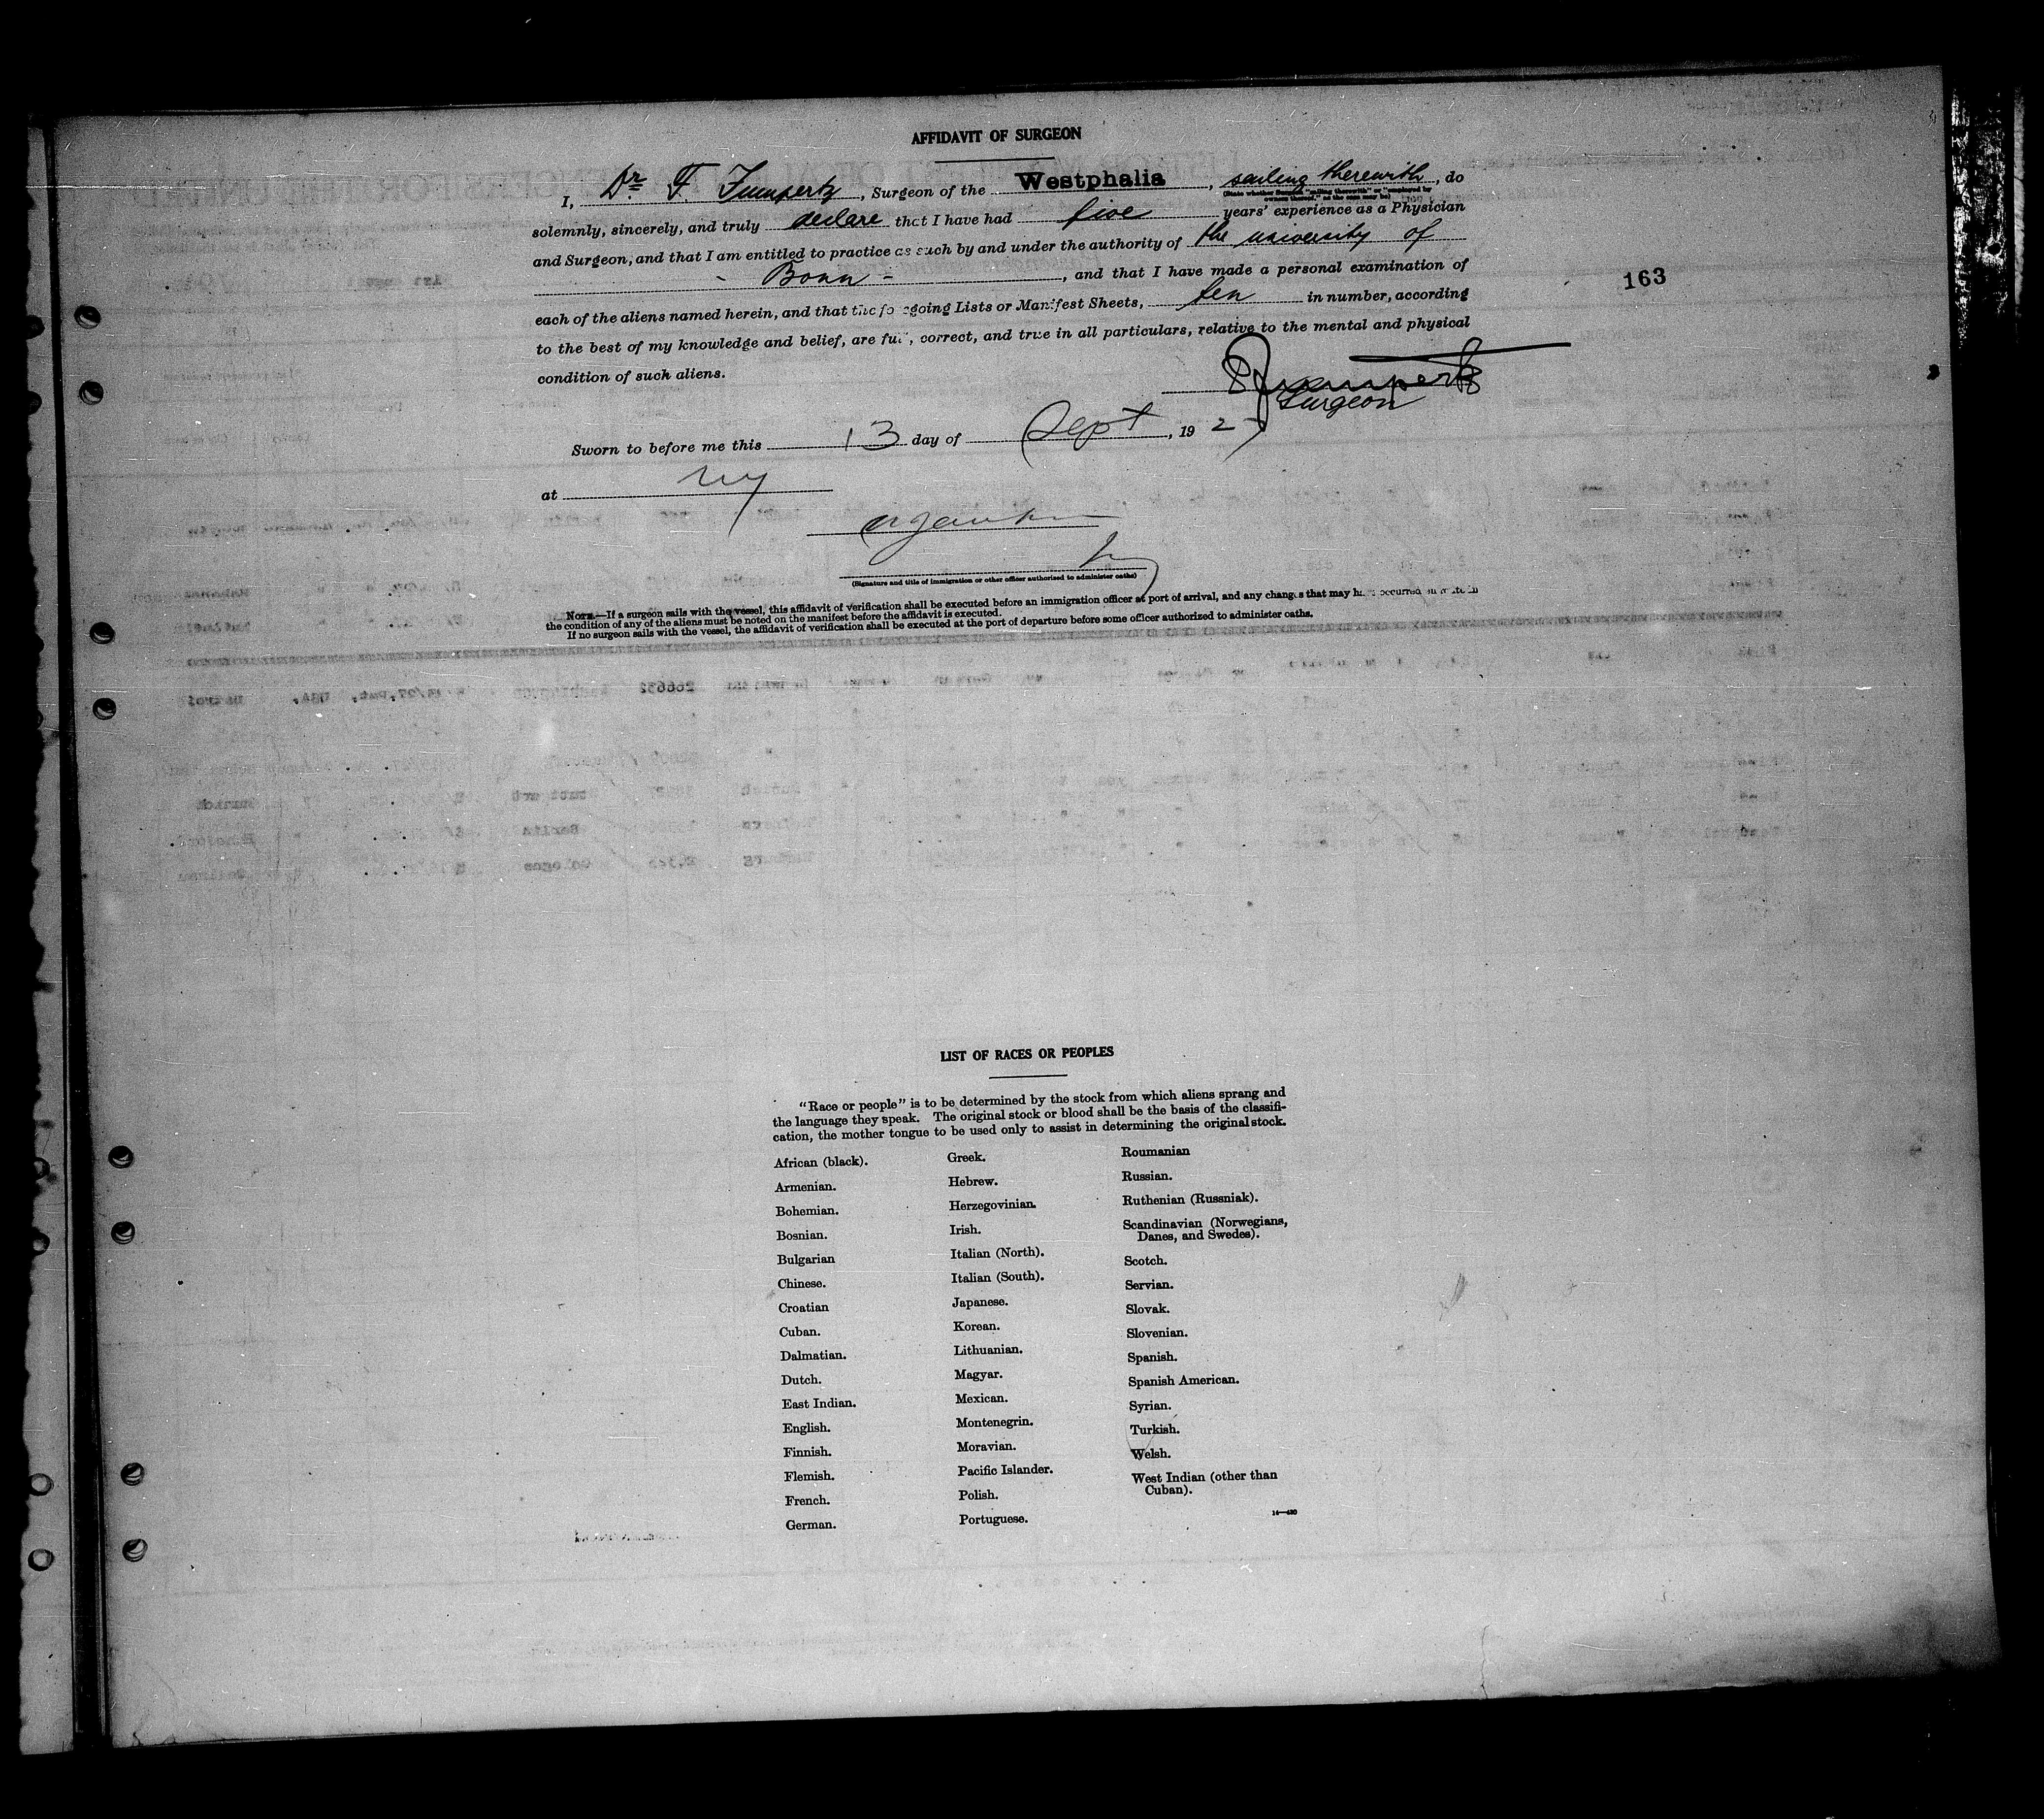 AFFIDAVIT OF SURGEON
I, Dr. F. , Surgeon of the Westphalia, sailing therewith, do
(State whether Surgeon "sailing therewith" or "employed by
owners thereof," as the case may be)
solemnly, sincerely, and truly declare that I have had five years' experience as a Physician
and Surgeon, and that I am entitled to practice as such by and under the authority of the university of
- Bonn - , and that I have made a personal examination of
163
each of the aliens named herein, and that the foregoing Lists or Manifest Sheets, ten in number, according
to the best of my knowledge and belief, are full, correct, and true in all particulars, relative to the mental and physical
condition of such aliens.
Surgeon
Sworn to before me this 13 day of Sept, 192
at NY
(Signature and title of immigration or other officer authorized to administer oaths)
NOTE.—If a surgeon sails with the vessel, this affidavit of verification shall be executed before an immigration officer at port of arrival, and any changes that may have occurred in
the condition of any of the aliens must be noted on the manifest before the affidavit is executed.
If no surgeon sails with the vessel, the affidavit of verification shall be executed at the port of departure before some officer authorized to administer oaths.
LIST OF RACES OR PEOPLES
"Race or people" is to be determined by the stock from which aliens sprang and
the language they speak. The original stock or blood shall be the basis of the classifi-
cation, the mother tongue to be used only to assist in determining the original stock.
African (black).
Armenian.
Bohemian.
Bosnian.
Bulgarian
Chinese.
Croatian
Cuban.
Dalmatian.
Dutch.
East Indian.
English.
Finnish.
Flemish.
French.
German.
Greek.
Hebrew.
Herzegovinian.
Irish.
Italian (North).
Italian (South).
Japanese.
Korean.
Lithuanian.
Magyar.
Mexican.
Montenegrin.
Moravian.
Pacific Islander.
Polish.
Portuguese.
Roumanian
Russian.
Ruthenian (Russniak).
Scandinavian (Norwegians,
Danes, and Swedes).
Scotch.
Servian.
Slovak.
Slovenian.
Spanish.
Spanish American.
Syrian.
Turkish.
Welsh.
West Indian (other than
Cuban).